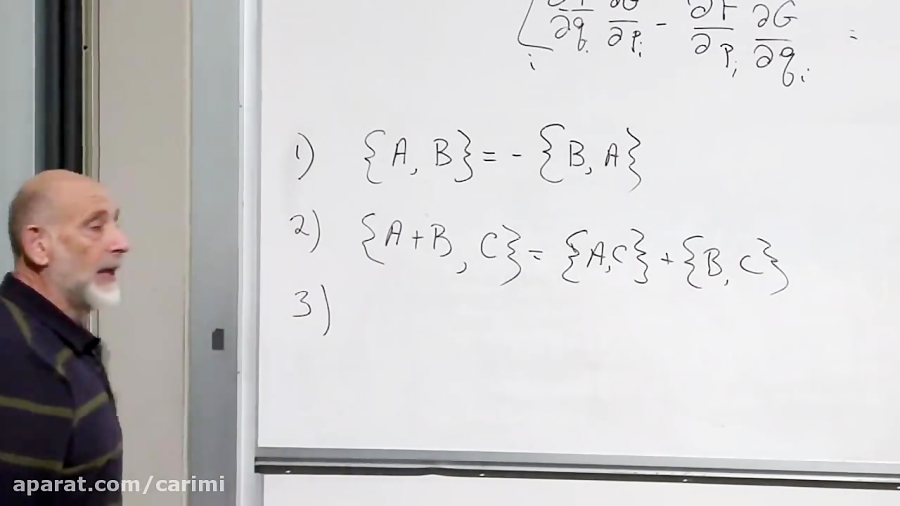 ∂F/∂qᵢ ∂G/∂pᵢ - ∂F/∂pᵢ ∂G/∂qᵢ =
i
1) {A, B} = - {B, A}
2) {A+B, C} = {A,C} + {B, C}
3)
aparat.com/carimi